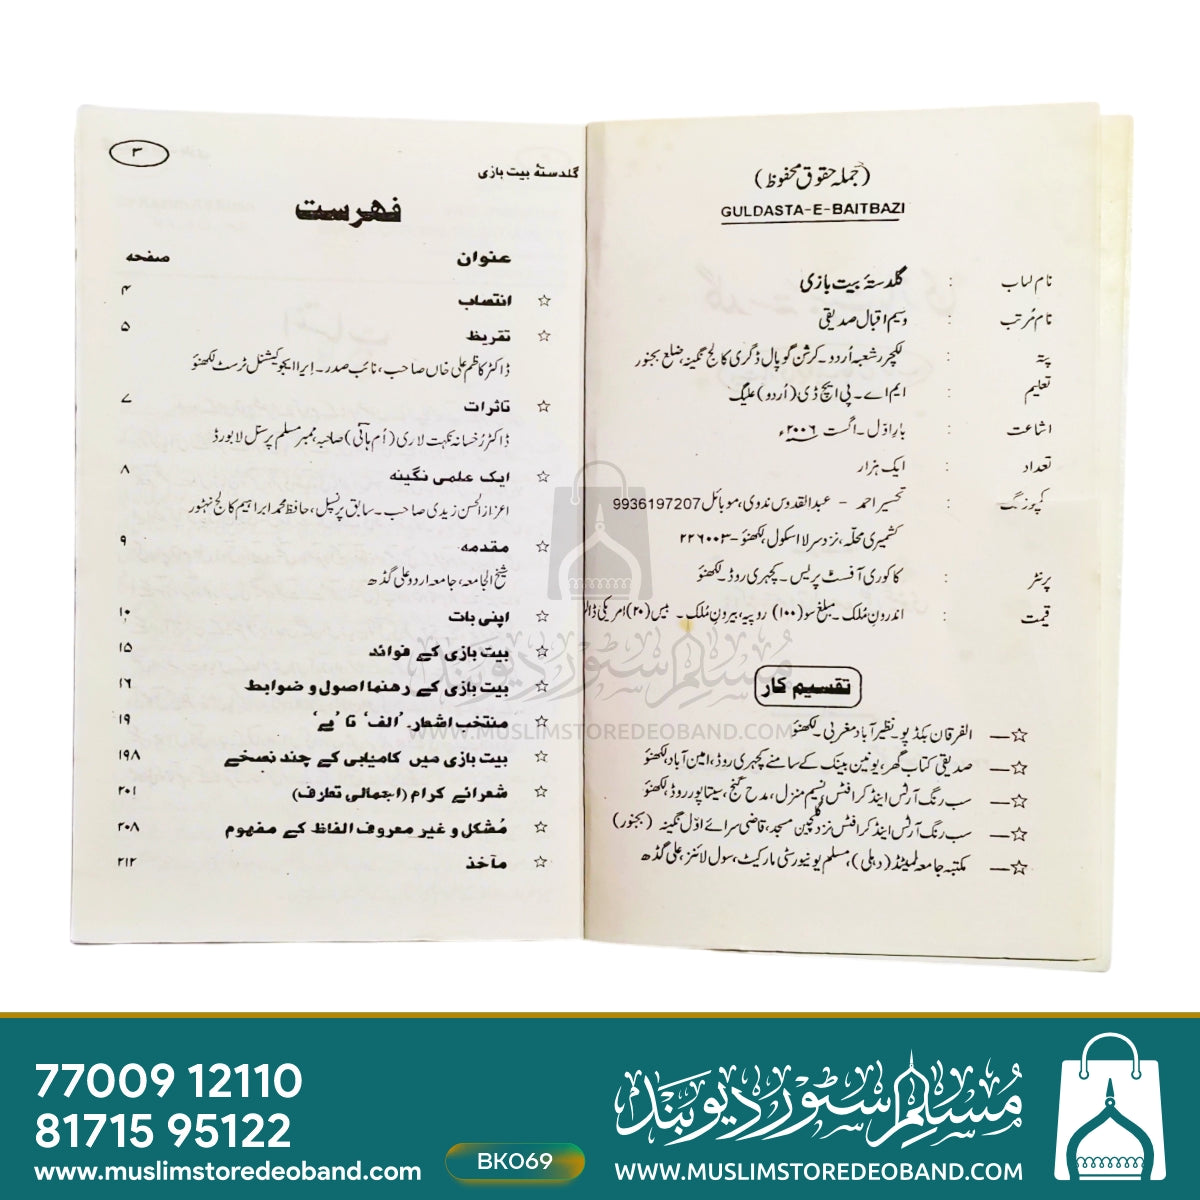 (جملہ حقوق محفوظ)
GULDASTA-E-BAITBAZI
نام کتاب : گلدستۂ بیت بازی
نام مُرتب : وسیم اقبال صدیقی
پتہ : لکچرر شعبہ اُردو۔ کرشن گوپال ڈگری کالج نگینہ، ضلع بجنور
تعلیم : ایم اے۔ پی ایچ ڈی (اُردو) علیگ
اشاعت : بارِ اوّل۔ اگست ۲۰۰۶ء
تعداد : ایک ہزار
کمپوزنگ : تحسیر احمد – عبدالقدوس ندوی، موبائل 9936197207
کشمیری محلّہ، نزد سرلا اسکول، لکھنؤ-۲۲۶۰۰۳
پرنٹر : کاکوری آفسٹ پریس۔ کچہری روڈ۔ لکھنؤ
قیمت : اندرونِ مُلک۔ مبلغ سو (۱۰۰) روپیہ، بیرونِ مُلک۔ بیس (۲۰) امریکی ڈالر
تقسیم کار
☆— الفرقان بکڈپو۔ نظیر آباد مغربی۔ لکھنؤ
☆— صدیقی کتاب گھر، یونین بینک کے سامنے کچہری روڈ، امین آباد، لکھنؤ
☆— سب رنگ آرٹس اینڈ کرافٹس نسیم منزل، مدح گنج، سیتاپور روڈ، لکھنؤ
☆— سب رنگ آرٹس اینڈ کرافٹس نزد گلچین مسجد، قاضی سرائے اوّل نگینہ (بجنور)
☆— مکتبہ جامعہ لمیٹڈ (دہلی)، مسلم یونیورسٹی مارکیٹ، سول لائنز، علی گڈھ
گلدستۂ بیت بازی
۳
فہرست
عنوان صفحہ
☆ انتساب ۴
☆ تقریظ ۵
ڈاکٹر کاظم علی خاں صاحب، نائب صدر۔ اِیرا ایجوکیشنل ٹرسٹ لکھنؤ
☆ تاثرات ۷
ڈاکٹر رُخسانہ نکہت لاری (اُم ہانی) صاحبہ، ممبر مسلم پرسنل لا بورڈ
☆ ایک علمی نگینہ ۸
اعزاز الحسن زیدی صاحب۔ سابق پرنسپل، حافظ محمد ابراہیم کالج نہٹور
☆ مقدمہ ۹
شیخ الجامعہ، جامعہ اردو علی گڈھ
☆ اپنی بات ۱۰
☆ بیت بازی کے فوائد ۱۵
☆ بیت بازی کے رهنما اصول و ضوابط ۱۶
☆ منتخب اشعار۔ 'الف' تا 'یے' ۱۹
☆ بیت بازی میں کامیابی کے چند نسخے ۱۹۸
☆ شعرائے کرام (اجمالی تعارف) ۲۰۱
☆ مُشکل و غیر معروف الفاظ کے مفہوم ۲۰۸
☆ مآخذ ۲۱۲
مُسلم سٹور دیوبند
WWW.MUSLIMSTOREDEOBAND.COM
77009 12110
81715 95122
www.muslimstoredeoband.com
BK069
مُسلم سٹور دیوبند
WWW.MUSLIMSTOREDEOBAND.COM